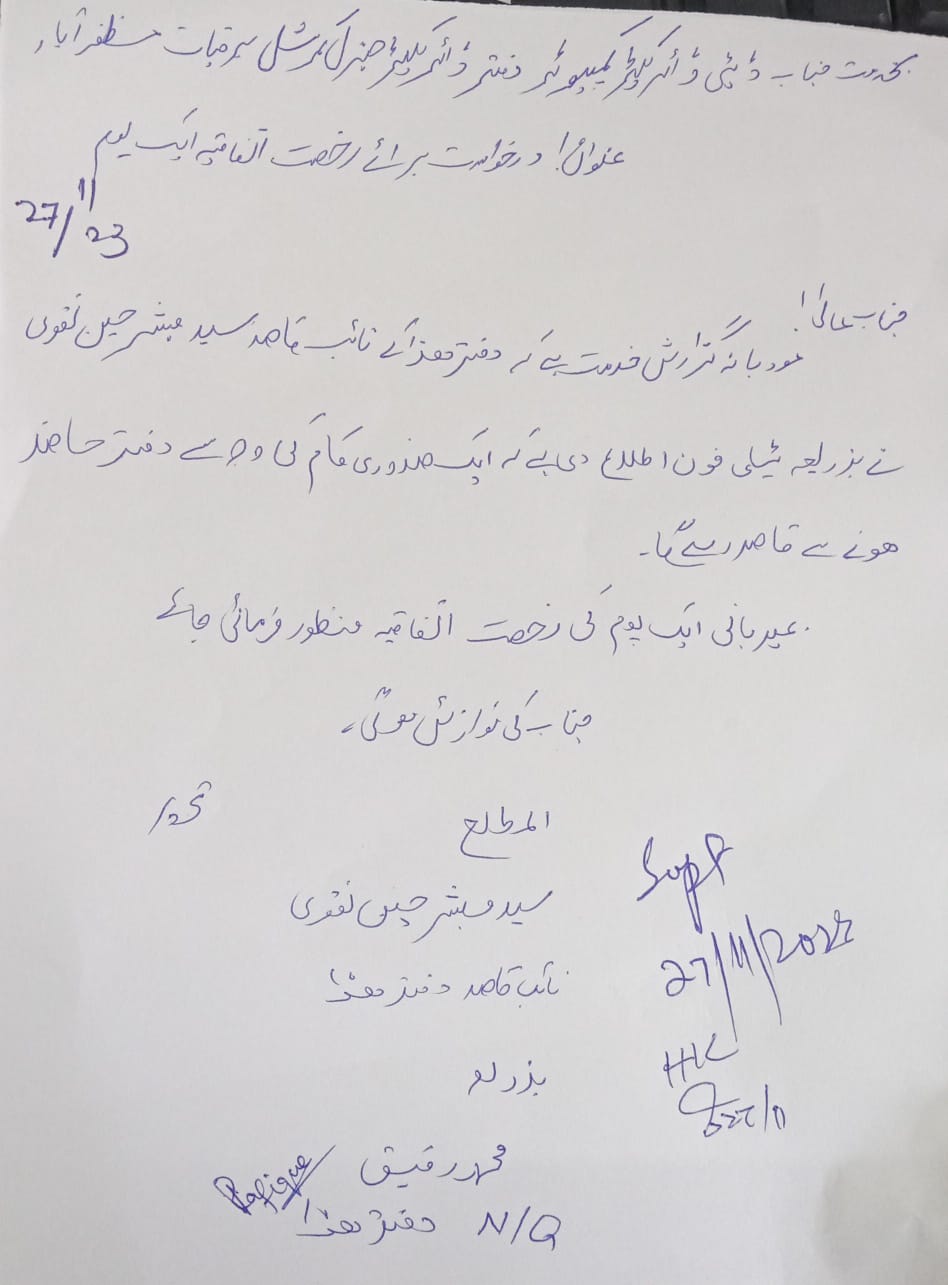 بخدمت جناب ڈپٹی ڈائریکٹر کمپیوٹر دفتر ڈائریکٹر جنرل کمرشل برقیات مظفرآباد
عنوان! درخواست برائے رخصت اتفاقیہ ایک یوم
27/11/23
جناب عالی!
مودبانہ گزارش خدمت ہے کہ دفتر ھذا کے نائب قاصد سید مبشر حسین نقوی
نے بذریعہ ٹیلی فون اطلاع دی ہے کہ ایک ضروری کام کی وجہ سے دفتر حاضر
ہونے سے قاصر رہے گا۔
مہربانی ایک یوم کی رخصت اتفاقیہ منظور فرمائی جائے
جناب کی نوازش ہوگی۔
المطلع
سید مبشر حسین نقوی
نائب قاصد دفتر ھذا
بذریعہ
محمد رفیق
Rafique
N/Q دفتر ھذا
Supt
27/11/2023